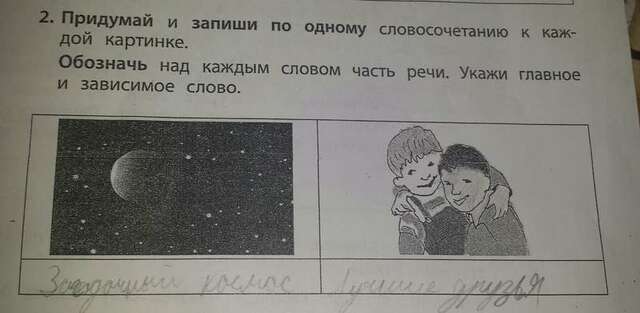 2. Придумай и запиши по одному словосочетанию к каж-
дой картинке.
Обозначь над каждым словом часть речи. Укажи главное
и зависимое слово.
космос
Лучшие друзья